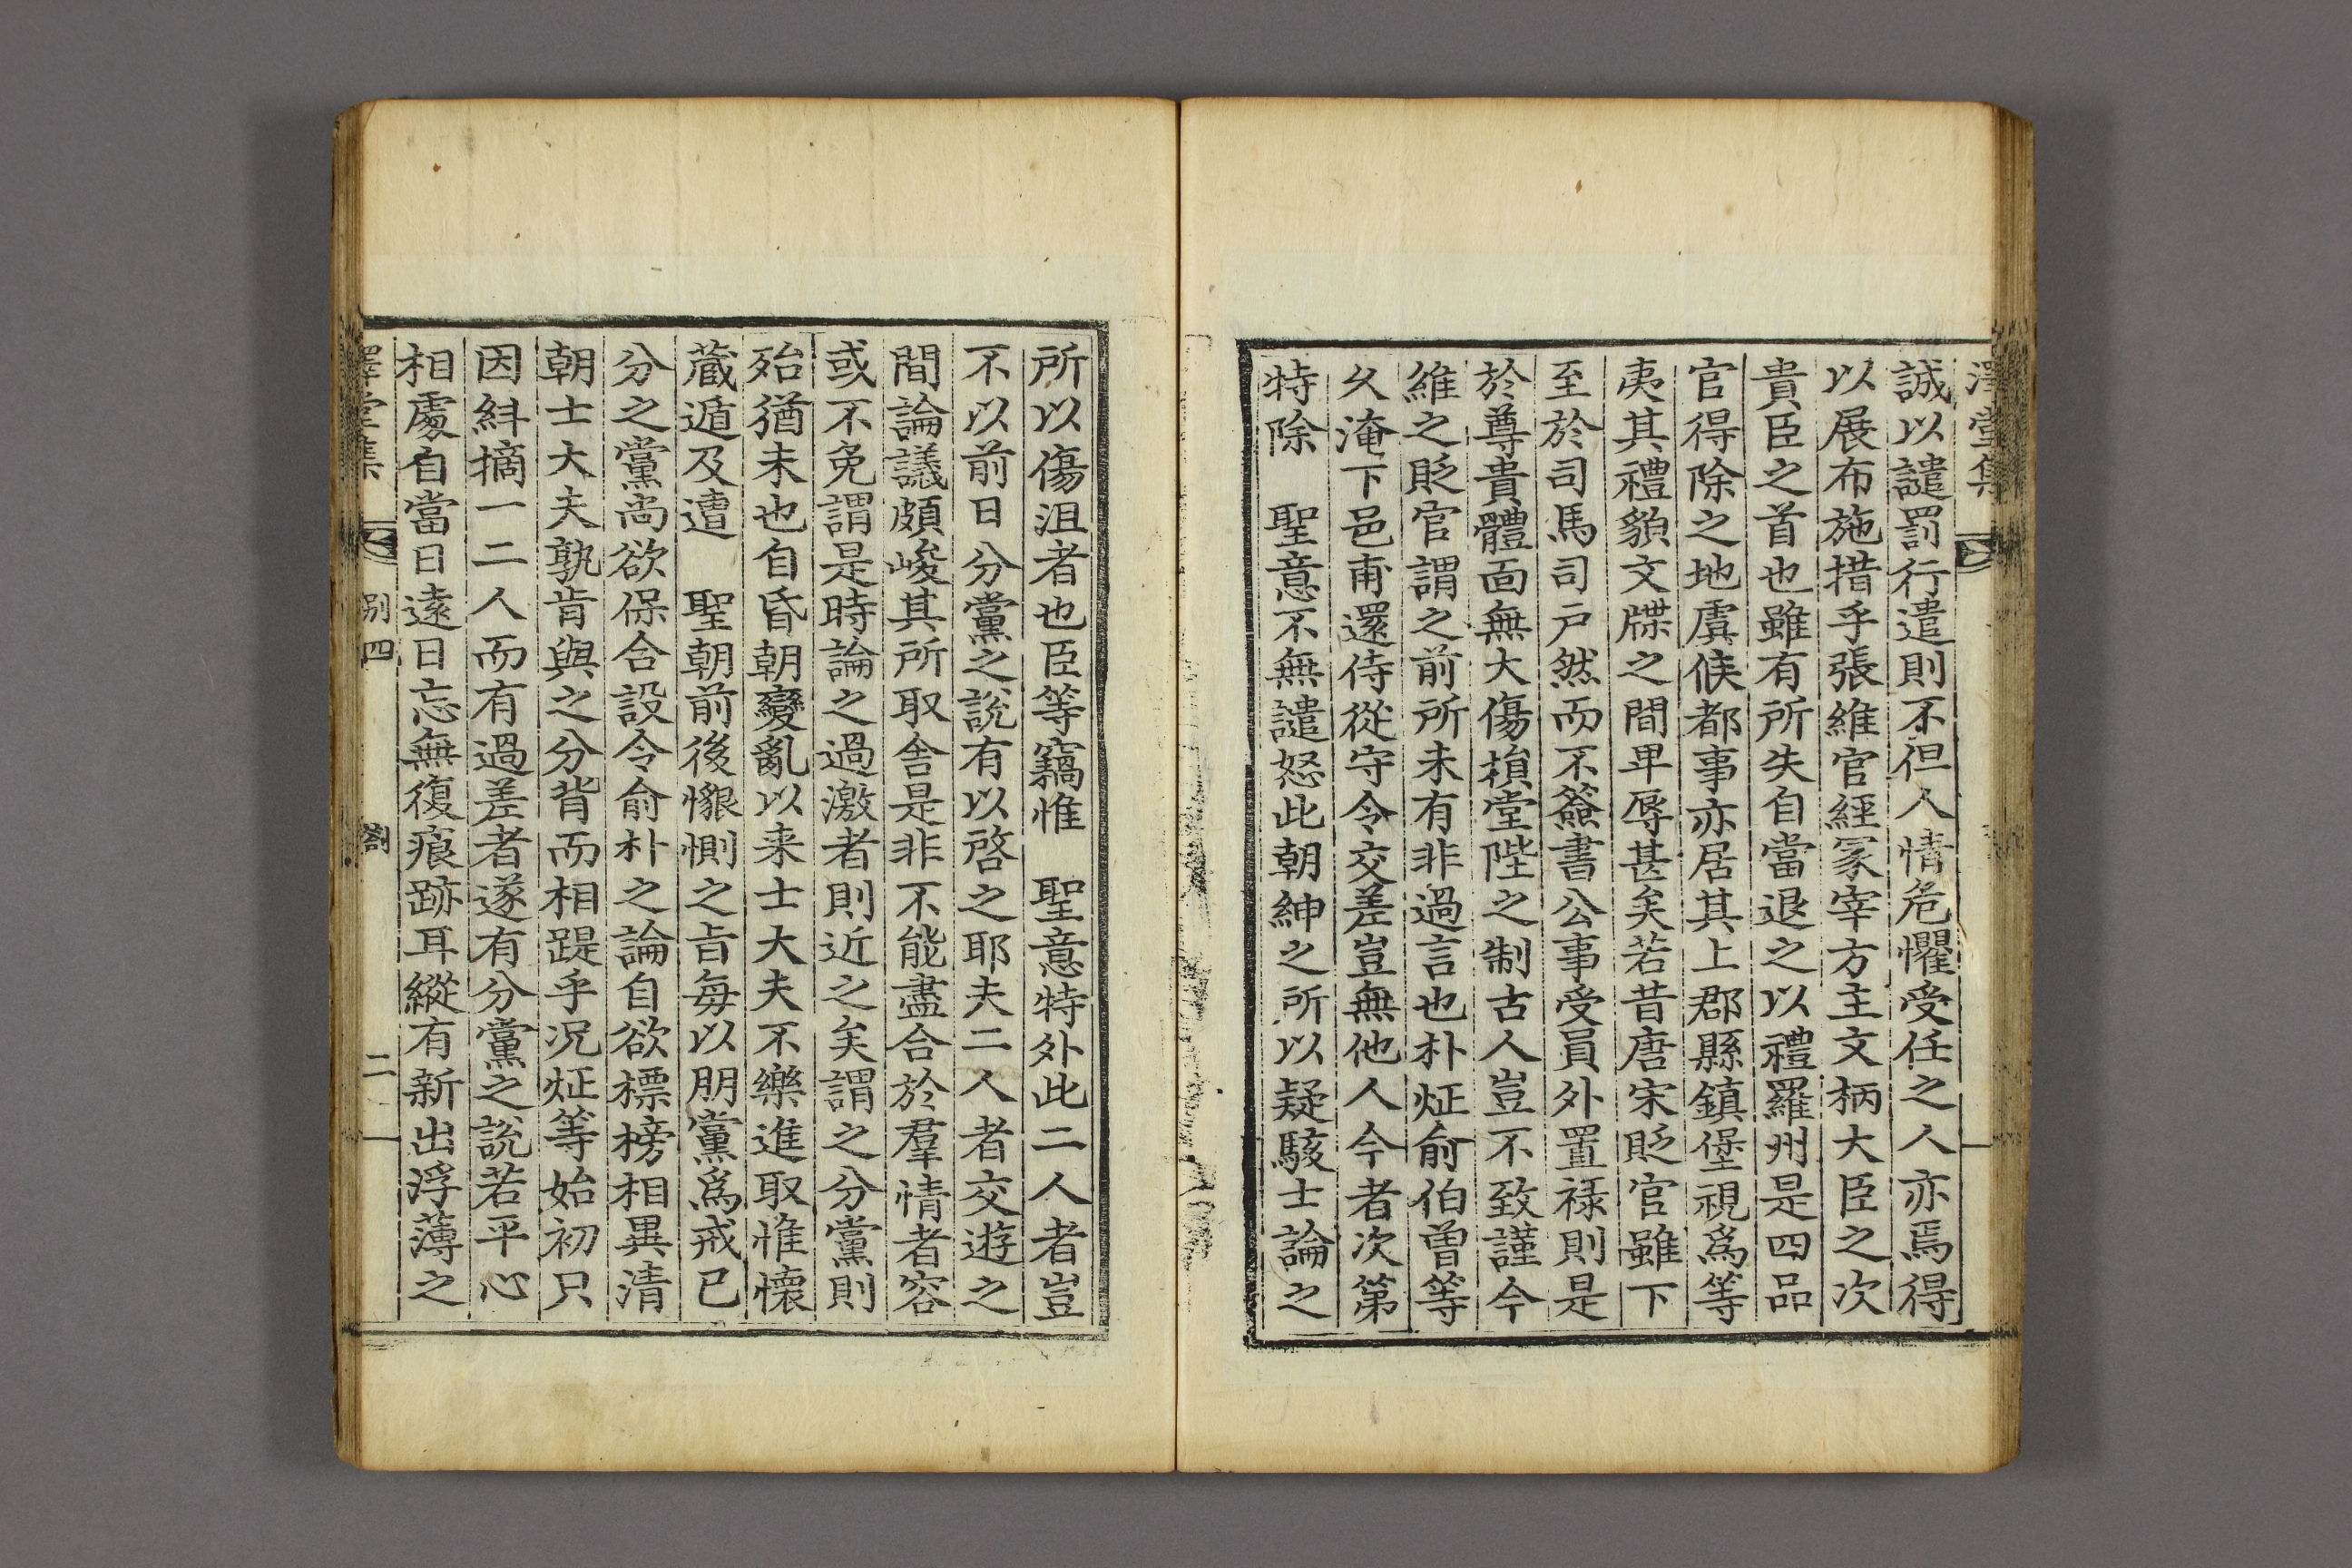 澤堂集
誠以譴罰行遣則不但人情危懼受任之人亦焉得
以展布施措乎張維官經冢宰方主文柄大臣之次
貴臣之首也雖有所失自當退之以禮羅州是四品
官得除之地虞候都事亦居其上郡縣鎮堡視爲等
夷其禮貌文牒之間卑辱甚矣若昔唐宋貶官雖下
至於司馬司戶然而不簽書公事受員外置祿則是
於尊貴體面無大傷損堂陛之制古人豈不致謹今
維之貶官謂之前所未有非過言也朴炡俞伯曾等
久淹下邑甫還侍從守令交差豈無他人今者次第
特除　聖意不無譴怒此朝紳之所以疑駭士論之
所以傷沮者也臣等竊惟　聖意特外此二人者豈
不以前日分黨之說有以啓之耶夫二人者交遊之
間論議頗峻其所取舍是非不能盡合於羣情者容
或不免謂是時論之過激者則近之矣謂之分黨則
殆猶未也自昏朝變亂以来士大夫不樂進取惟懷
藏遁及遭　聖朝前後懇惻之旨每以朋黨爲戒已
分之黨尚欲保合設令俞朴之論自欲標榜相異清
朝士大夫孰肯與之分背而相踶乎况炡等始初只
因糾摘一二人而有過差者遂有分黨之說若平心
相處自當日遠日忘無復痕跡耳縱有新出浮薄之
澤堂集 别四 劄 二